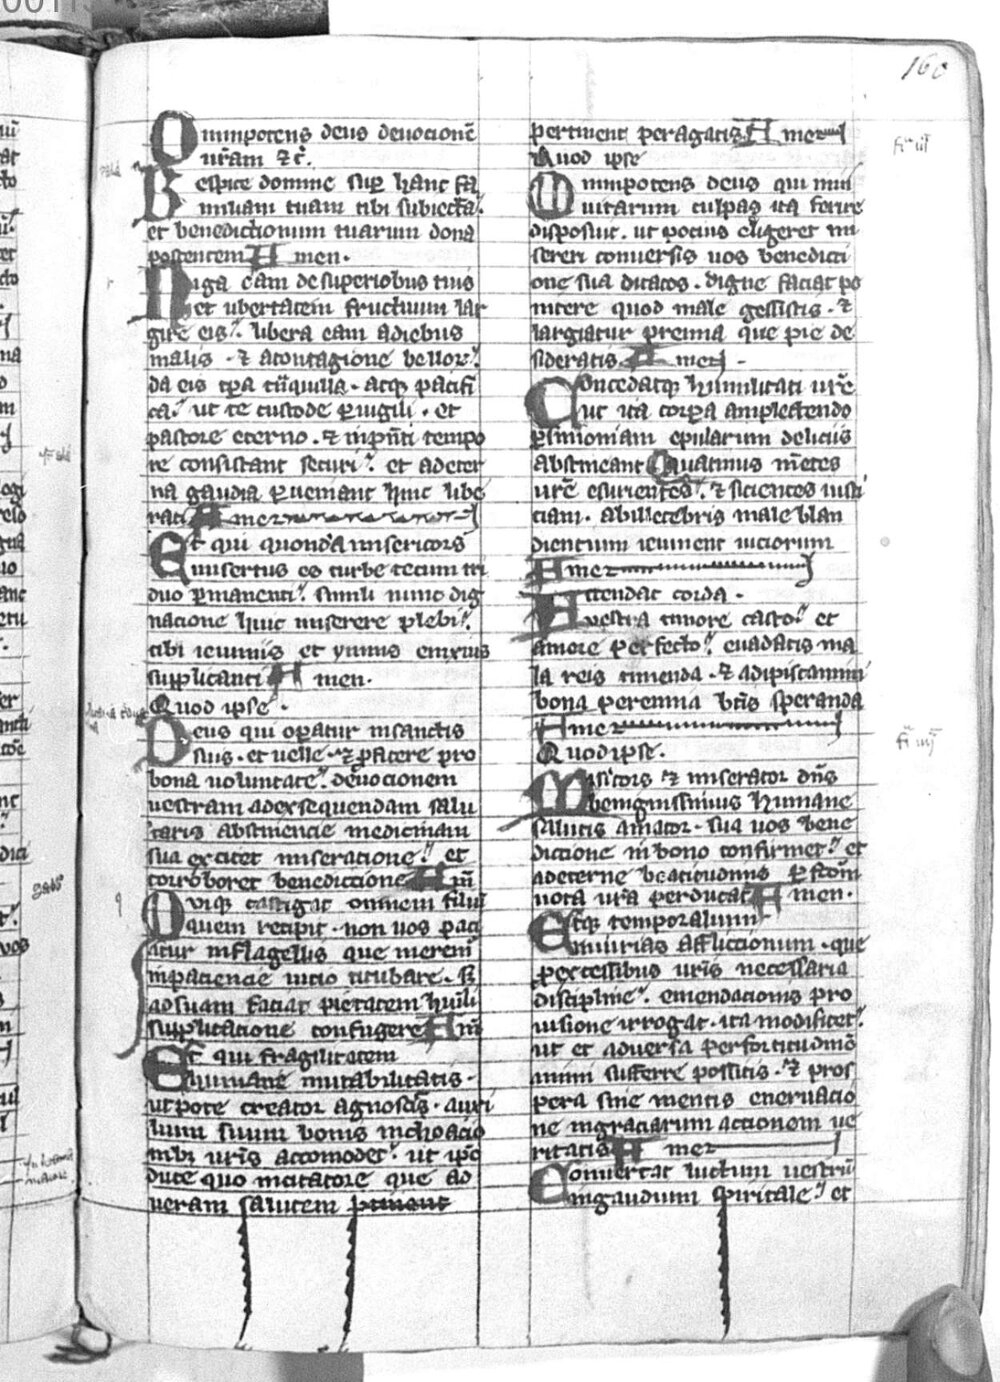 Omnipotens deus deuocionē
ur̄am ⁊c̄.
Respice domine sup hanc fa
muliam tuam tibi subiectā.
et benedictionum tuarum dona
poscentem Amen.
Riga eam de superiobus tuis
et ubertatem fructuum lar
gire eis. libera eam adiebus
malis. ⁊ acontagione belloꝝ
da eis tꝑa tᷓquilla. atqꝫ pacifi
ca. ut te custode ꝑuigili. et
pastore eterno. ⁊ inpn̄ti tempo
re consistant securi. et adeter
na gaudia ꝑueniant hinc libe
rati Amen
Et qui quondā misericors
misertus es turbe tecum tri
duo ꝑmanenti. simili nunc dig
nacione huic miserere plebi.
tibi ieiuniis et ymnis enixius
supplicanti Amen.
Quod ipse.
Deus qui oꝑatur insanctis
suis. et uelle. ⁊ ꝑficere pro
bona uoluntate. deuocionem
uestram adexsequendam salu
taris abstinencie medicinam
sua excitet miseracione. et
corroboret benedictione Am̄
Quiqꝫ castigat omnem filiū
quem recipit. non uos paci
atur inflagellis que merem̄
inpaciencie uicio titubare. Sꝫ
adsuam faciat pietatem huīli
supplicatione confugere Am̄
Et qui fragilitatem
humane mutabilitatis.
utpote creator agnoscis. auxi
lium suum bonis inchoacio
nibꝫ ur̄is accomodet. ut ip̄o
duce quo incitatore que ad
ueram salutem ꝑtinent
pertinent peragatis Amen
Quod ipse
Omnipotens deus qui iniu
uitarum culpas ita ferire
disposuit. ut pocius eligeret mi
sereri conuersis uos benedicti
one sua ditatos. digne faciat pe
nitere quod male gessistis. ⁊
largiatur premia que pie de
sideratis. Amen.
Concedatqꝫ humilitati ur̄e
ut ita corꝑa amplectendo
ꝑsimoniam epularum deliciis
abstineant Quatinus m̄etes
ur̄e esurientes. ⁊ sicientes iusti
ciam. abillecebris male blan
dientium ieiunent uiciorum
Amen
Attendat corda.
uestra timore casto. et
amore perfecto. euadatis ma
la reis timenda. ⁊ adipiscamini
bona perennia btīs speranda
Amen
Quod ipse.
Misic̄ors ⁊ miserator dn̄s
benignissimus humane
salutis amator. sua uos bene
dictione inbono confirmet. et
adeterne beatitudinis
uota ur̄a perducat Amen.
Etqꝫ temporalium
iniurias afflictionum. que
ꝓexcessibus ur̄is necessaria
discipline. emendacionis pro
uisione irrogat. ita modificet.
ut et aduersa perfortitudinē
animi sufferre possitis. ⁊ pros
pera sine mentis eneruacio
ne ingraciarum actionem ue
ritatis Amen
Conuertat luctum uestrū
ingaudium spiritale. et